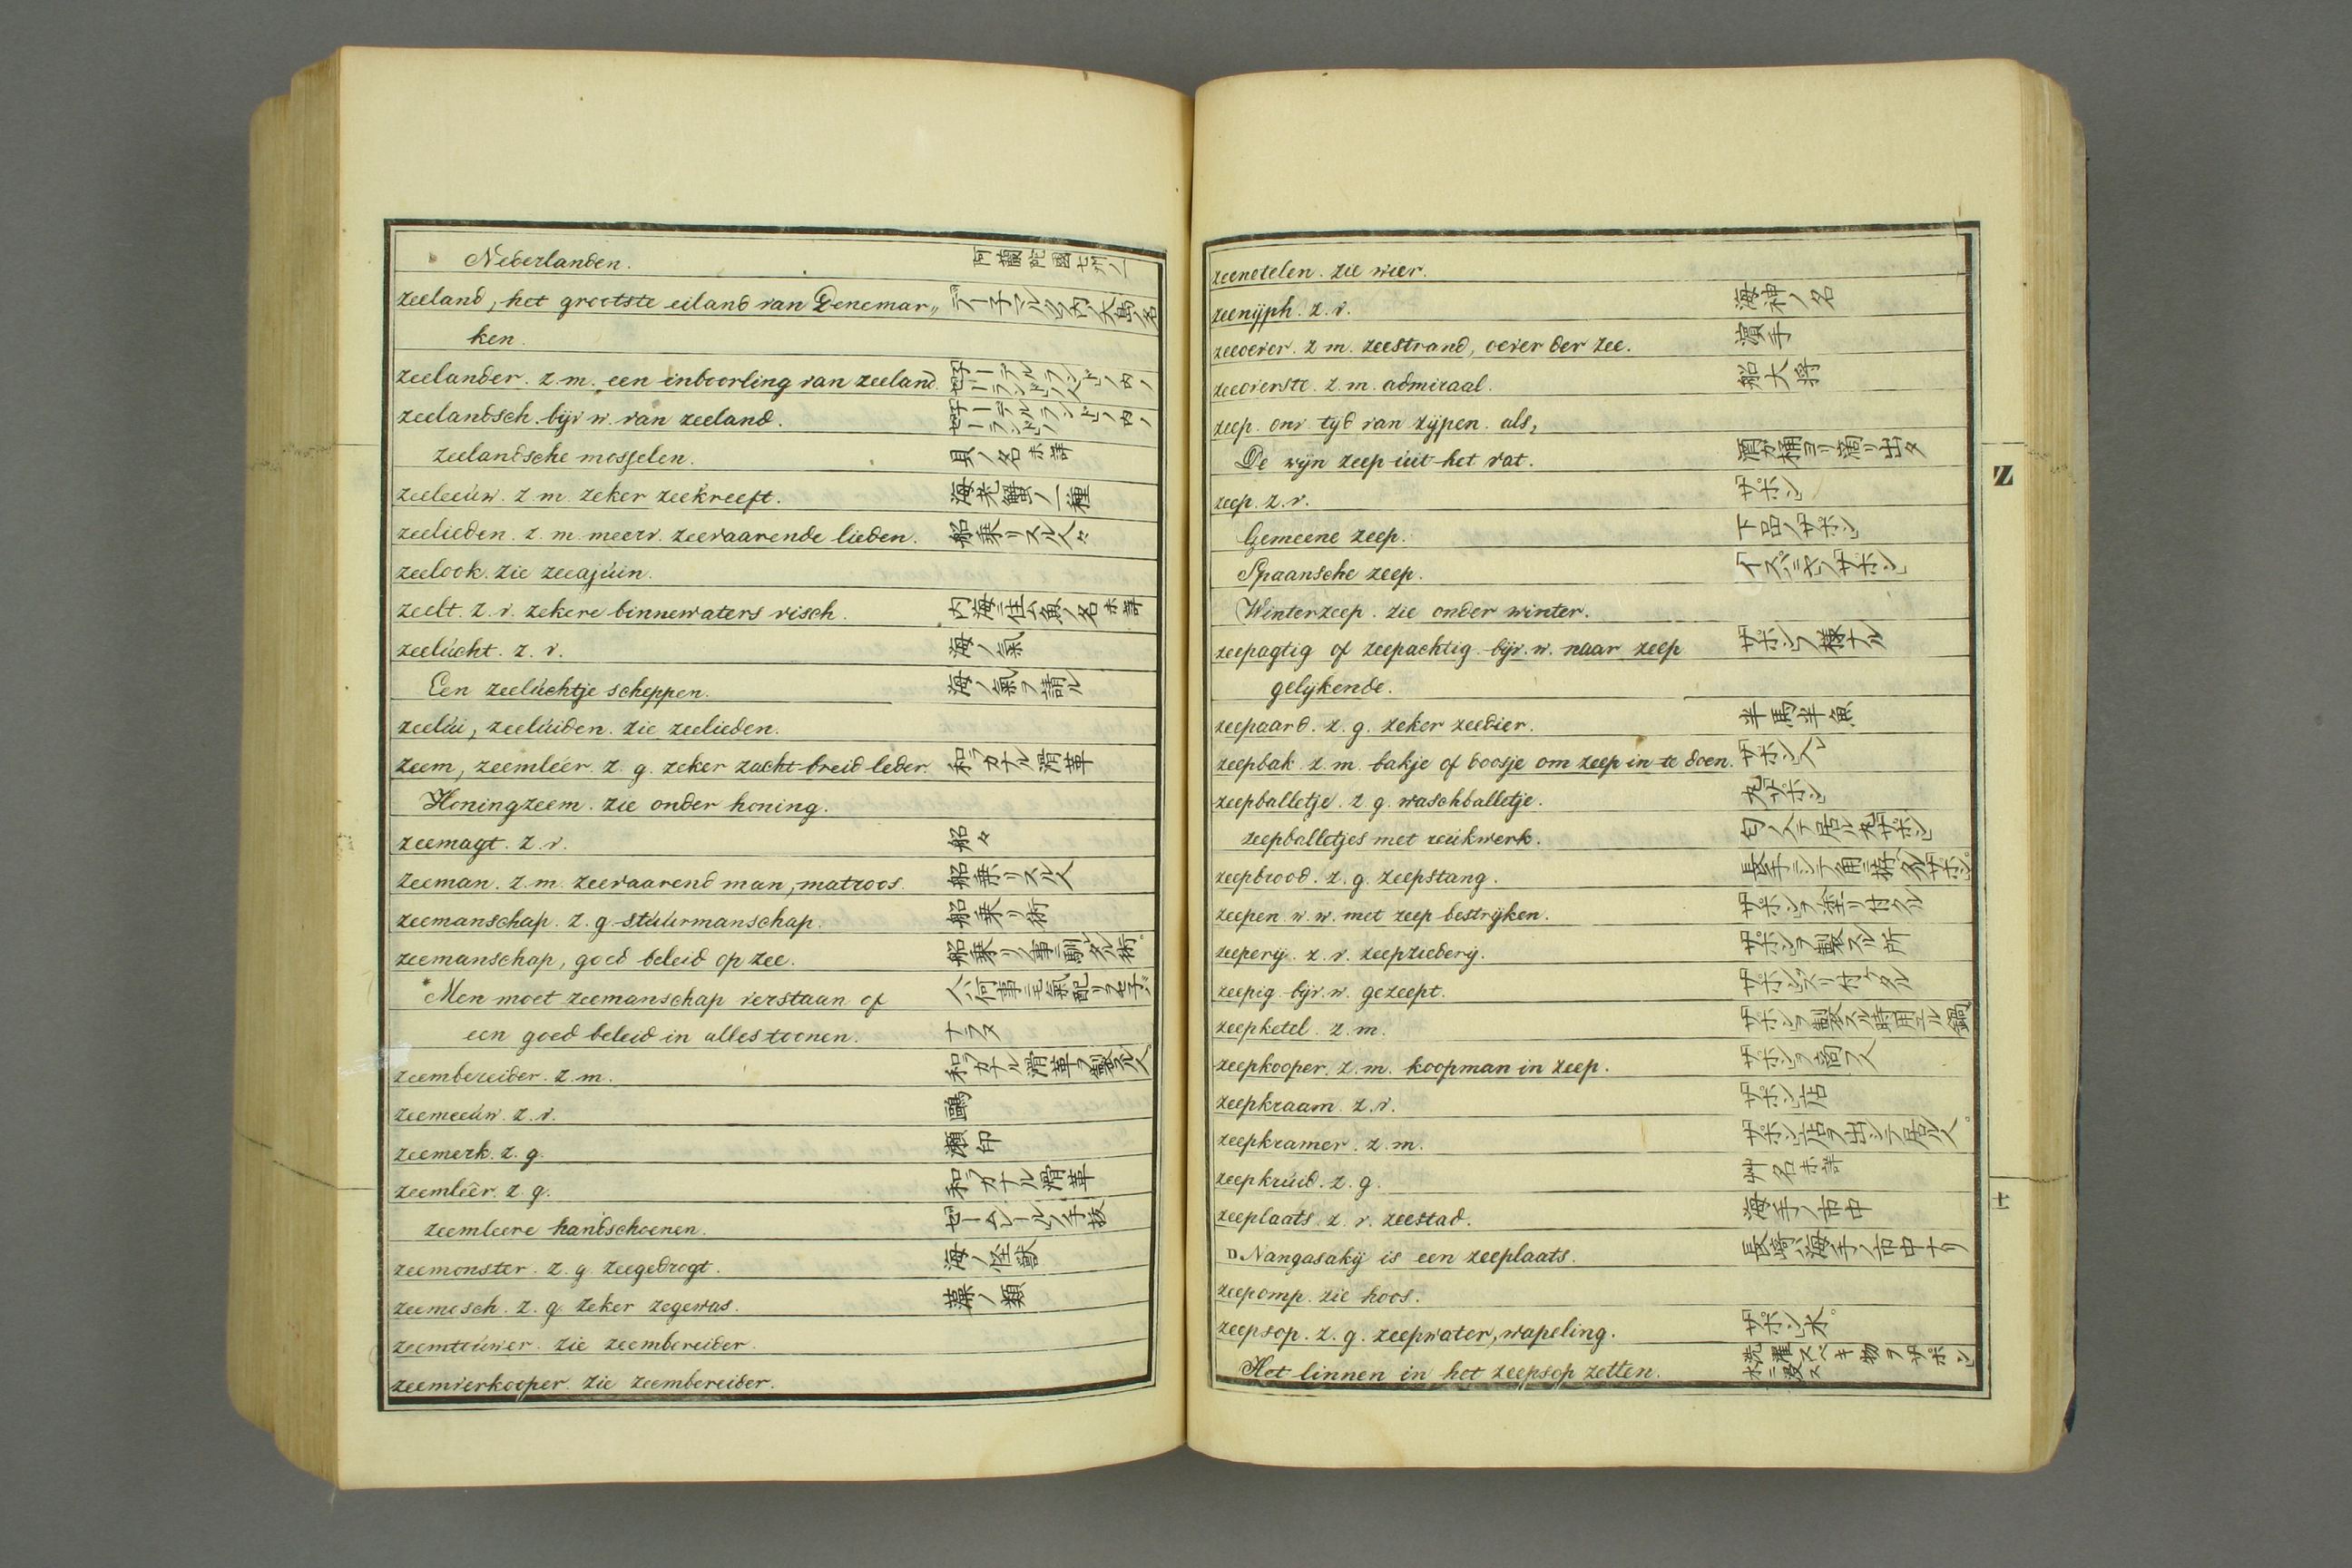 Nederlanden. 阿蘭陀國七州ノ一
zeeland, het grootste eiland van Denemar„
ken.
zeelander. z.m. een inboorling van zeeland.
zeelandsch. bijv w. van zeeland.
zeelandsche mosselen. 貝ノ名未詳
zeeleeúw. z.m. zeker zeekreeft. 海老蟹ノ一種
zeelieden. z.m. meerv. zeevaarende lieden. 船乗リスル人々
zeelook. zie zeeajúin.
zeelt. z.v. zekere binnewaters visch. 内海ニ住ム魚ノ名未詳
zeelúcht. z.v. 海ノ氣
Een zeelúchtje scheppen. 海ノ氣ヲ請ル
zeelúi, zeelúiden. zie zeelieden.
zeem, zeemleer. z.g. zeker zacht breid leder. 和ラカナル滑革
Honingzeem. zie onder honing.
zeemagt. z.v. 船々
zeeman. z.m. zeevaarend man, matroos. 船乗リスル人
zeemanschap. z.g. stúúrmanschap. 船乗リ術
zeemanschap, goed beleid op zee. 船乗リノ事ニ馴タル術。
Men moet zeemanschap verstaan of 人何事ニモ氣配リヲセ子バ
een goed beleid in alles toonen. ナラヌ
zeembereider. z.m. 和ラカナル滑革ヲ製スル人
zeemeeúw. z.v. 鷗
zeemerk. z.g. 瀬印
zeemleêr. z.g. 和ラカナル滑革
zeemleere handschoenen.
zeemonster. z.g. zeegedrogt. 海ノ怪獣
zeemosch. z.g. zeker zegewas. 藻ノ類
zeemtoúwer. zie zeembereider.
zeemverkooper. zie zeembereider.
zeenetelen. zie wier.
zeenijph. z.v. 海神ノ名
zeeoever. z.m. zeestrand, oever der zee. 濱手
zeeoverste. z.m. admiraal. 船大将
zeep. onv. tijd van zijpen. als,
De wijn zeep úit het vat. 酒ガ桶ヨリ滴リ出タ
zeep. z.v. サボン
Gemeene zeep. 下品ノサボン
Spaansche zeep. イスパニヤノサボン
Winterzeep. zie onder winter.
zeepagtig of zeepachtig. bijv. w. naar zeep サボンノ様ナル
gelijkende.
zeepaard. z.g. zeker zeedier. 半馬半魚
zeepbak. z.m. bakje of doosje om zeep in te doen. サボン入レ
zeepballetje. z.g. waschballetje. 丸サボン
zeepballetjes met reúkwerk. 匂ノ入テ居ル丸サボン
zeepbrood. z.g. zeepstang.
zeepen. w.w. met zeep bestrijken. サボンヲ塗リ付クル
zeeperij. z.v. zeepziederij. サボンヲ製スル所
zeepig. bijv. w. gezeept.
zeepketel. z.m. サボンヲ製スル時用ユル鍋
zeepkooper. z.m. koopman in zeep. サボンヲ商フ人
zeepkraam. z.v. サボン店
zeepkramer. z.m. サボン店ヲ出シテ居ル人。
zeepkrúid. z.g. 艸名未詳
zeeplaats. z.v. zeestad. 海手ノ市中
D Nangasakij is een zeeplaats. 長崎ハ海手ノ市中ナリ
zeepomp. zie hoos.
zeepsop. z.g. zeepwater, wapeling. サボン水。
Het linnen in het zeepsop zetten. 洗濯スベキ物ヲサボン水ニ浸ス
Z